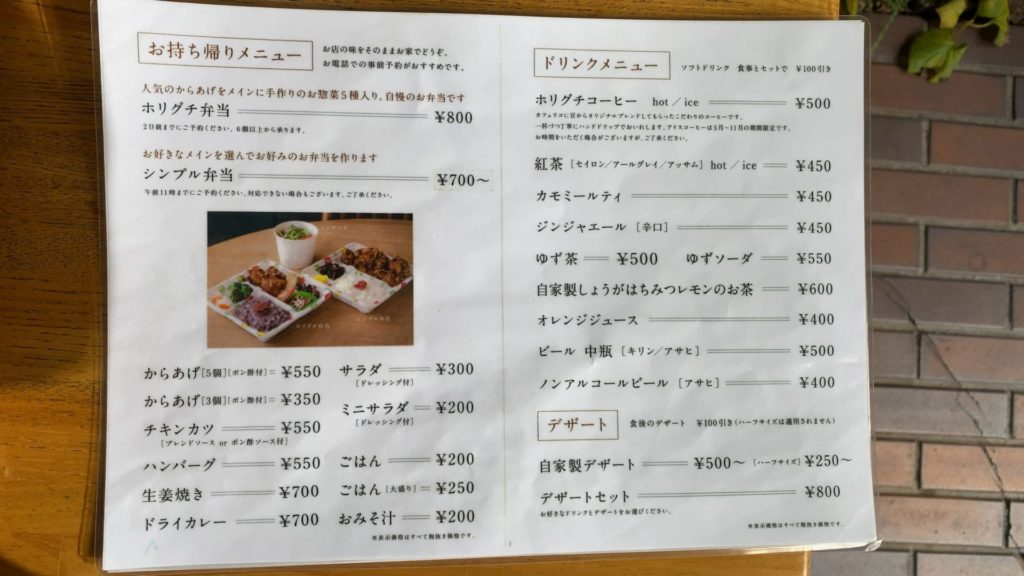 お持ち帰りメニュー
お店の味をそのままお家でどうぞ。
お電話での事前予約がおすすめです。
人気のからあげをメインに手作りのお惣菜5種入り。自慢のお弁当です
ホリグチ弁当 ¥800
2日前までにご予約ください。6個以上から承ります。
お好きなメインを選んでお好みのお弁当を作ります
シンプル弁当 ¥700〜
午前11時までにご予約ください。対応できない場合もございます。ご了承ください。
ホリグチ弁当
シンプル弁当
からあげ[5個][ポン酢付] ¥550
からあげ[3個][ポン酢付] ¥350
チキンカツ ¥550
[ブレンドソース or ポン酢ソース付]
ハンバーグ ¥550
生姜焼き ¥700
ドライカレー ¥700
サラダ ¥300
[ドレッシング付]
ミニサラダ ¥200
[ドレッシング付]
ごはん ¥200
ごはん[大盛り] ¥250
おみそ汁 ¥200
※表示価格はすべて税抜き価格です。
ドリンクメニュー
ソフトドリンク 食事とセットで ¥100引き
ホリグチコーヒー hot / ice ¥500
カフェリコに豆からオリジナルブレンドしてもらったこだわりのコーヒーです。
一杯づつ丁寧にハンドドリップでおいれします。アイスコーヒーは5月〜11月の期間限定です。
お時間をいただく場合がございますが、ご了承ください。
紅茶 [セイロン/アールグレイ/アッサム] hot / ice ¥450
カモミールティ ¥450
ジンジャエール [辛口] ¥450
ゆず茶 ¥500 ゆずソーダ ¥550
自家製しょうがはちみつレモンのお茶 ¥600
オレンジジュース ¥400
ビール 中瓶 [キリン/アサヒ] ¥500
ノンアルコールビール [アサヒ] ¥400
デザート
食後のデザート ¥100引き(ハーフサイズは適用されません)
自家製デザート ¥500〜 [ハーフサイズ] ¥250〜
デザートセット ¥800
お好きなドリンクとデザートをお選びください。
※表示価格はすべて税抜き価格です。